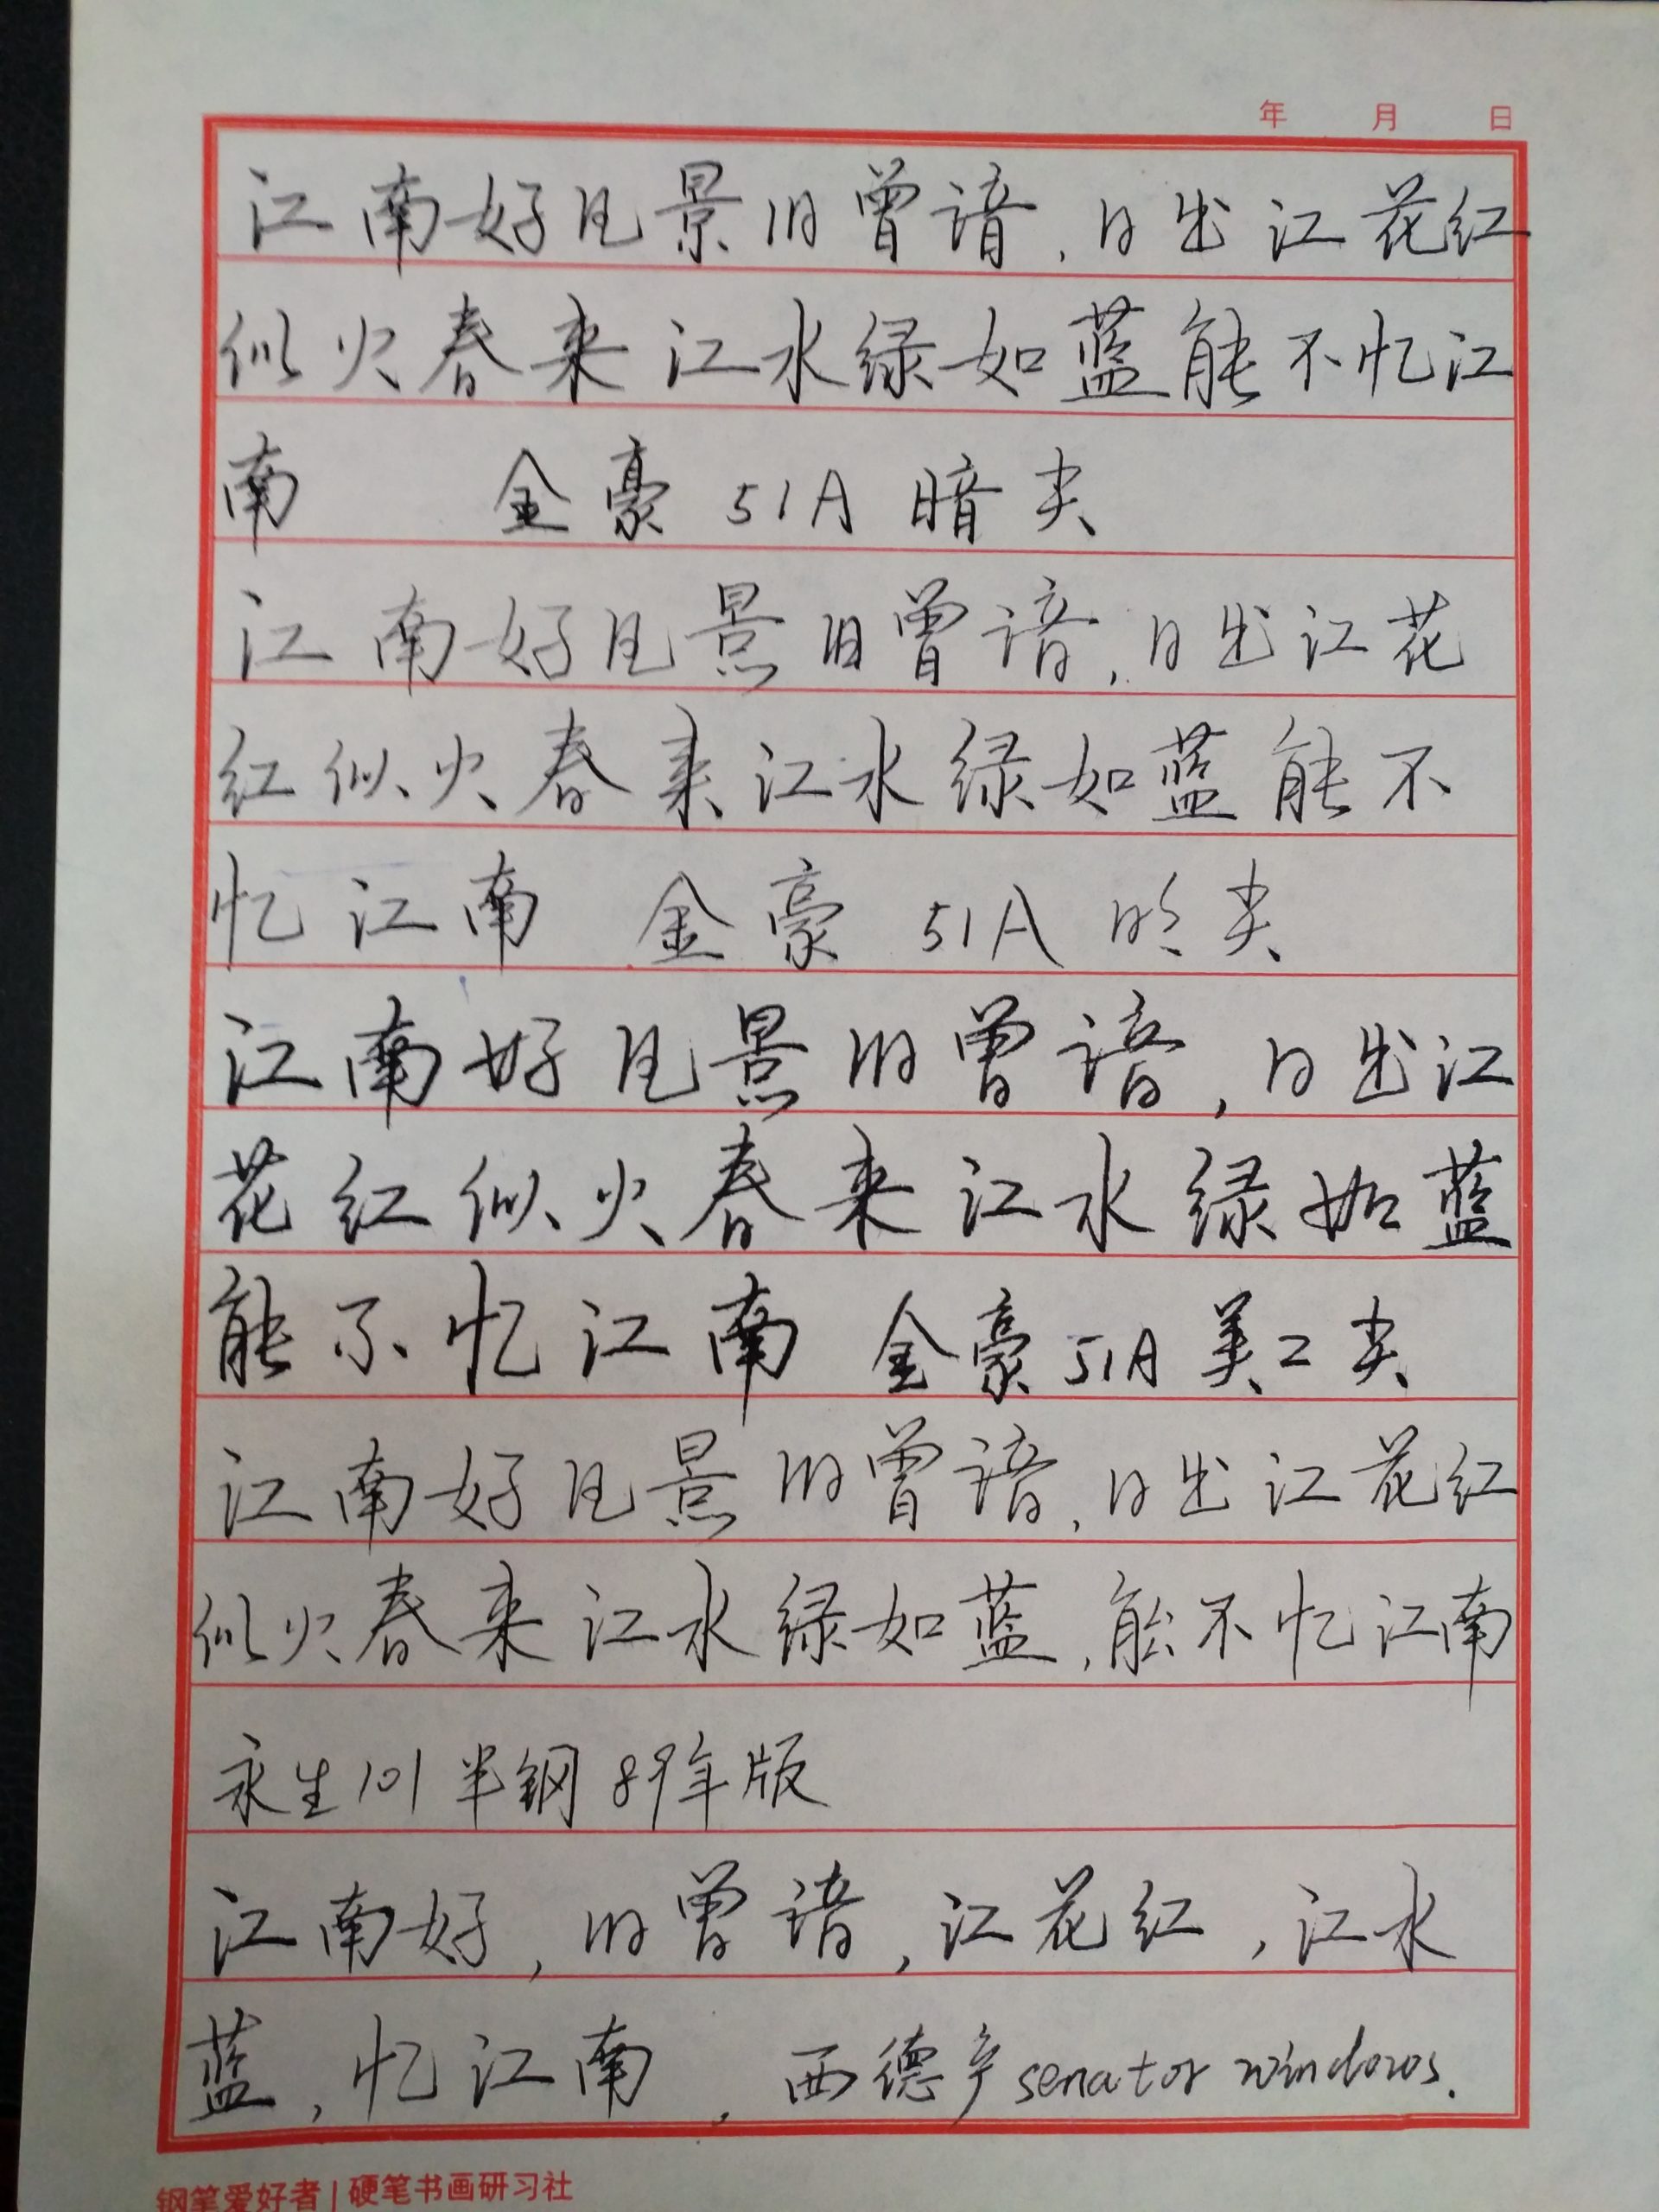 年 月 日
江南好风景旧曾谙,日出江花红
似火春来江水绿如蓝能不忆江
南 金豪 51A 暗尖
江南好风景旧曾谙,日出江花
红似火春来江水绿如蓝能不
忆江南 金豪 51A 明尖
江南好风景旧曾谙,日出江
花红似火春来江水绿如蓝
能不忆江南 金豪 51A 美工尖
江南好风景旧曾谙,日出江花红
似火春来江水绿如蓝,能不忆江南
永生101半钢89年版
江南好,旧曾谙,江花红,江水
蓝,忆江南,西德产senator windows.
钢笔爱好者|硬笔书画研习社